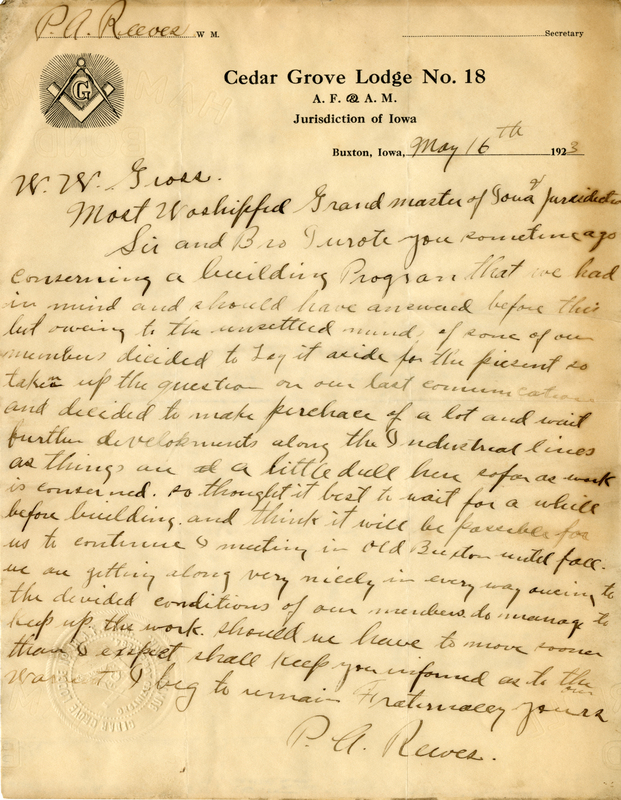 P. A. Reeves W M.
Secretary
G
Cedar Grove Lodge No. 18
A. F. & A. M.
Jurisdiction of Iowa
Buxton, Iowa, May 16th 1923
W. W. Gross.
Most Woshipffed Grand master of Iowa & Jurisdiction
Sir and Bro I wrote you sometime ago
conserning a building Program that we had
in mind and should have answered before this
but owing to the unsettled minds of some of our
members decided to Lay it aside for the present so
taken up the question on our last comunication
and decided to make perchace of a lot and wait
further develokments along the Industrial lines
as things are a little dull here sofar as work
is conserned. so thought it best to wait for a while
before building. and think it will be possible for
us to continue meeting in Old Buxton until fall.
we are getting along very nicely in every way oweing to
the devided conditions of our members. do manage to
keep up the work. should we have to move sooner
than I exspect shall keep you informed as to the
Warrent I beg to remain Fraternally yours
P. A. Reeves.